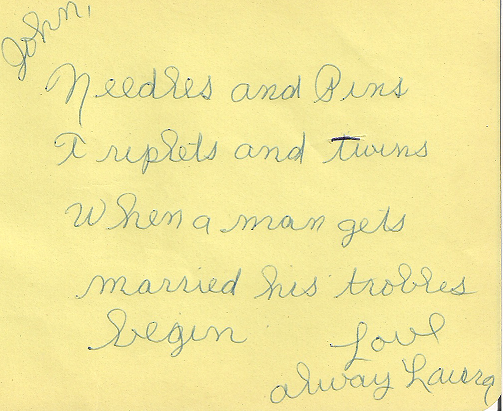 John,
Needles and Pins
Triplets and twins
When a man gets
married his trobles
begin Love
alway Laura